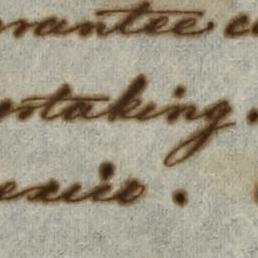 arantee c
ertaking.
exico.